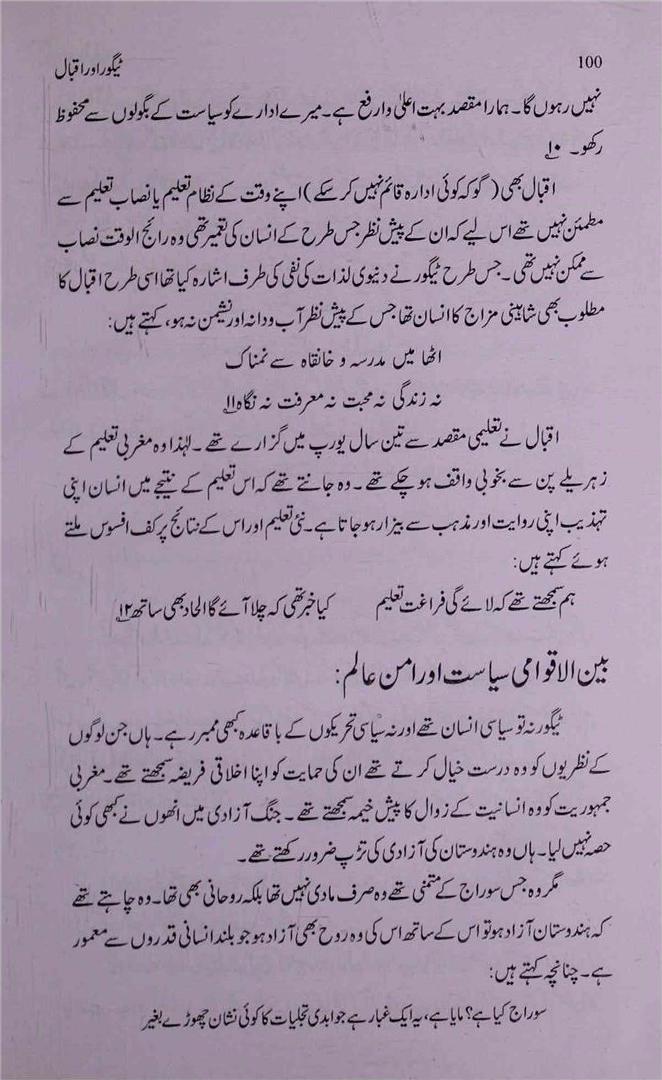 100
ٹیگور اور اقبال
نہیں رہوں گا۔ ہمارا مقصد بہت اعلیٰ وارفع ہے۔ میرے ادارے کو سیاست کے بگولوں سے محفوظ
رکھو۔ ۱۰
اقبال بھی (گو کہ کوئی ادارہ قائم نہیں کر سکے) اپنے وقت کے نظام تعلیم یا نصاب تعلیم سے
مطمئن نہیں تھے اس لیے کہ ان کے پیش نظر جس طرح کے انسان کی تعمیر تھی وہ رائج الوقت نصاب
سے ممکن نہیں تھی۔ جس طرح ٹیگور نے دنیوی لذات کی نفی کی طرف اشارہ کیا تھا اسی طرح اقبال کا
مطلوب بھی شاہینی مزاج کا انسان تھا جس کے پیش نظر آب و دانہ اور نشیمن نہ ہو، کہتے ہیں:
اٹھا میں مدرسہ و خانقاہ سے نمناک
نہ زندگی نہ محبت نہ معرفت نہ نگاہ ۱۱
اقبال نے تعلیمی مقصد سے تین سال یورپ میں گزارے تھے۔ لہٰذا وہ مغربی تعلیم کے
زہریلے پن سے بخوبی واقف ہو چکے تھے۔ وہ جانتے تھے کہ اس تعلیم کے نتیجے میں انسان اپنی
تہذیب اپنی روایت اور مذہب سے بیزار ہو جاتا ہے۔ نئی تعلیم اور اس کے نتائج پر کف افسوس ملتے
ہوئے کہتے ہیں:
ہم سمجھتے تھے کہ لائے گی فراغت تعلیم کیا خبر تھی کہ چلا آئے گا الحاد بھی ساتھ ۱۲
بین الاقوامی سیاست اور امن عالم:
ٹیگور نہ تو سیاسی انسان تھے اور نہ سیاسی تحریکوں کے باقاعدہ کبھی ممبر رہے۔ ہاں جن لوگوں
کے نظریوں کو وہ درست خیال کرتے تھے ان کی حمایت کو اپنا اخلاقی فریضہ سمجھتے تھے۔ مغربی
جمہوریت کو وہ انسانیت کے زوال کا پیش خیمہ سمجھتے تھے۔ جنگ آزادی میں انھوں نے کبھی کوئی
حصہ نہیں لیا۔ ہاں وہ ہندوستان کی آزادی کی تڑپ ضرور رکھتے تھے۔
مگر وہ جس سوراج کے متمنی تھے وہ صرف مادی نہیں تھا بلکہ روحانی بھی تھا۔ وہ چاہتے تھے
کہ ہندوستان آزاد ہو تو اس کے ساتھ اس کی وہ روح بھی آزاد ہو جو بلند انسانی قدروں سے معمور
ہے۔ چنانچہ کہتے ہیں:
سوراج کیا ہے؟ مایا ہے، یہ ایک غبار ہے جو ابدی تجلیات کا کوئی نشان چھوڑے بغیر